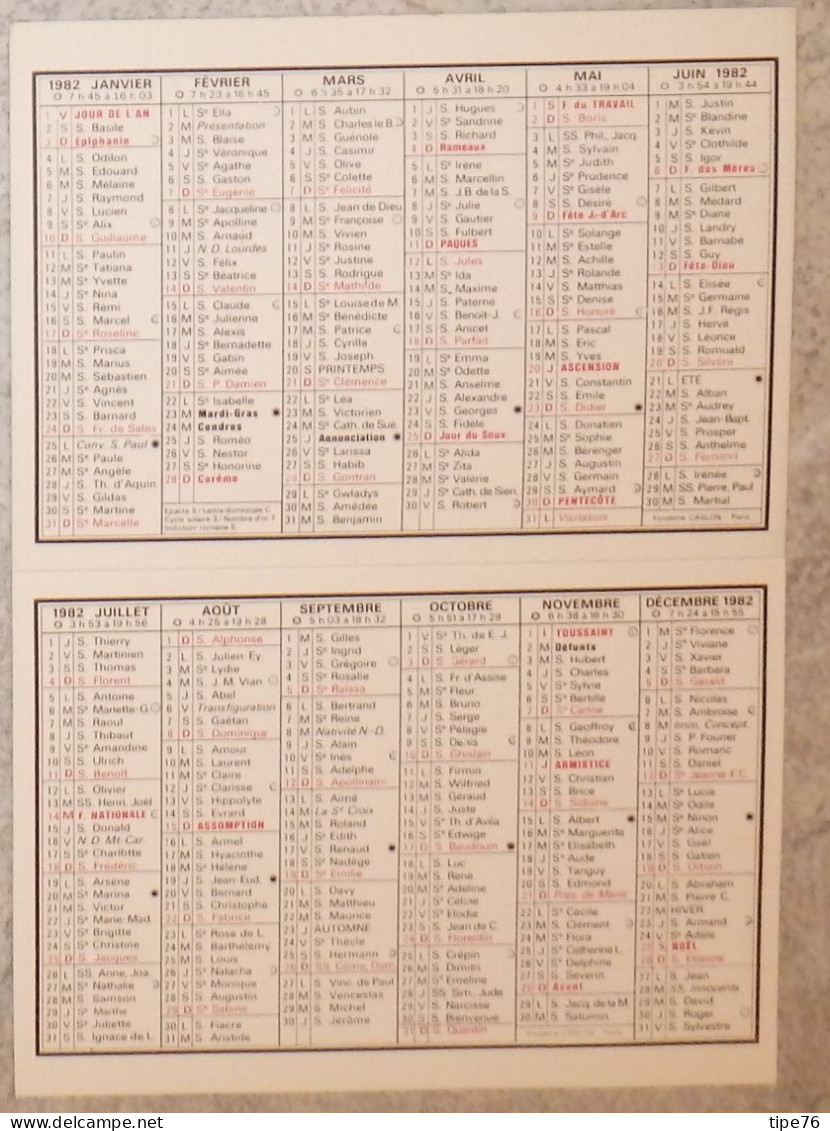 1982 JANVIER
7 h 45 à 16 h 03
1 V JOUR DE L'AN
2 S S. Basile
3 D Epiphanie
4 L S. Odilon
5 M S. Edouard
6 M S. Mélaine
7 J S. Raymond
8 V S. Lucien
9 S Se Alix
10 D S. Guillaume
11 L S. Paulin
12 M Se Tatiana
13 M Se Yvette
14 J Se Nina
15 V S. Rémi
16 S S. Marcel
17 D Se Roseline
18 L Se Prisca
19 M S. Marius
20 M S. Sébastien
21 J Se Agnès
22 V S. Vincent
23 S S. Barnard
24 D S. Fr. de Sales
25 L Conv. S. Paul
26 M Se Paule
27 M Se Angèle
28 J S. Th. d'Aquin
29 V S. Gildas
30 S Se Martine
31 D Se Marcelle
FÉVRIER
7 h 23 à 16 h 45
1 L Se Ella
2 M Présentation
3 M S. Blaise
4 J Se Véronique
5 V Se Agathe
6 S S. Gaston
7 D Se Eugénie
8 L Se Jacqueline
9 M Se Apolline
10 M S. Arnaud
11 J N.D. Lourdes
12 V S. Félix
13 S Se Béatrice
14 D S. Valentin
15 L S. Claude
16 M Se Julienne
17 M S. Alexis
18 J Se Bernadette
19 V S. Gabin
20 S Se Aimée
21 D S. P. Damien
22 L Se Isabelle
23 M Mardi-Gras
24 M Cendres
25 J S. Roméo
26 V S. Nestor
27 S Se Honorine
28 D Carême
Epacte 5 / Lettre dominicale C
Cycle solaire 3 / Nombre d'or 7
Indiction romaine 5
MARS
6 h 35 à 17 h 32
1 L S. Aubin
2 M S. Charles le B.
3 M S. Guénolé
4 J S. Casimir
5 V S. Olive
6 S Se Colette
7 D Se Félicité
8 L S. Jean de Dieu
9 M Se Françoise
10 M S. Vivien
11 J Se Rosine
12 V Se Justine
13 S S. Rodrigue
14 D Se Mathilde
15 L Se Louise de M
16 M Se Bénédicte
17 M S. Patrice
18 J S. Cyrille
19 V S. Joseph
20 S PRINTEMPS
21 D Se Clémence
22 L Se Léa
23 M S. Victorien
24 M Cath. de Sué.
25 J Annonciation
26 V Se Larissa
27 S S. Habib
28 D S. Gontran
29 L Se Gwladys
30 M S. Amédée
31 M S. Benjamin
AVRIL
5 h 31 à 18 h 20
1 J S. Hugues
2 V Se Sandrine
3 S S. Richard
4 D Rameaux
5 L Se Irène
6 M S. Marcellin
7 M S. J.B. de la S.
8 J Se Julie
9 V S. Gautier
10 S S. Fulbert
11 D PAQUES
12 L S. Jules
13 M Se Ida
14 M S. Maxime
15 J S. Paterne
16 V S. Benoit-J.
17 S S. Anicet
18 D S. Parfait
19 L Se Emma
20 M Se Odette
21 M S. Anselme
22 J S. Alexandre
23 V S. Georges
24 S S. Fidèle
25 D Jour du Souv.
26 L Se Alida
27 M Se Zita
28 M Se Valérie
29 J Se Cath. de Sien.
30 V S. Robert
MAI
4 h 33 à 19 h 04
1 S F. du TRAVAIL
2 D S. Boris
3 L SS. Phil., Jacq.
4 M S. Sylvain
5 M Se Judith
6 J Se Prudence
7 V Se Gisèle
8 S S. Désiré
9 D Fête J.-d'Arc
10 L Se Solange
11 M Se Estelle
12 M S. Achille
13 J Se Rolande
14 V S. Matthias
15 S Se Denise
16 D S. Honoré
17 L S. Pascal
18 M S. Eric
19 M S. Yves
20 J ASCENSION
21 V S. Constantin
22 S S. Emile
23 D S. Didier
24 L S. Donatien
25 M Se Sophie
26 M S. Bérenger
27 J S. Augustin
28 V S. Germain
29 S S. Aymard
30 D PENTECÔTE
31 L Visitation
JUIN 1982
3 h 54 à 19 h 44
1 M S. Justin
2 M Se Blandine
3 J S. Kevin
4 V Se Clothilde
5 S S. Igor
6 D F. des Mères
7 L S. Gilbert
8 M S. Médard
9 M Se Diane
10 J S. Landry
11 V S. Barnabé
12 S S. Guy
3 D Fête-Dieu
14 L S. Elisée
15 M Se Germaine
16 M S. J.F. Régis
17 J S. Hervé
18 V S. Léonce
19 S S. Romuald
20 D S. Silvère
21 L ETÉ
22 M S. Alban
23 M Se Audrey
24 J S. Jean-Bapt.
25 V S. Prosper
26 S S. Anthelme
27 D S. Fernand
28 L S. Irénée
29 M SS. Pierre, Paul
30 M S. Martial
Fonderie CASLON - Paris
1982 JUILLET
3 h 53 à 19 h 56
1 J S. Thierry
2 V S. Martinien
3 S S. Thomas
4 D S. Florent
5 L S. Antoine
6 M Se Mariette-G.
7 M S. Raoul
8 J S. Thibaut
9 V Se Amandine
10 S S. Ulrich
11 D S. Benoît
12 L S. Olivier
13 M SS. Henri, Joël
14 M F. NATIONALE
15 J S. Donald
16 V N.D. Mt-Car.
17 S Se Charlotte
18 D S. Frédéric
19 L S. Arsène
20 M Se Marina
21 M S. Victor
22 J Se Marie-Mad.
23 V Se Brigitte
24 S Se Christine
25 D S. Jacques
26 L SS. Anne, Joa.
27 M Se Nathalie
28 M S. Samson
29 J Se Marthe
30 V Se Juliette
31 S S. Ignace de L.
AOÛT
4 h 25 à 19 h 28
1 D S. Alphonse
2 L S. Julien-Ey.
3 M Se Lydie
4 M S. J.M. Vian.
5 J S. Abel
6 V Transfiguration
7 S S. Gaétan
8 D S. Dominique
9 L S. Amour
10 M S. Laurent
11 M Se Claire
12 J Se Clarisse
13 V S. Hippolyte
14 S S. Evrard
15 D ASSOMPTION
16 L S. Armel
17 M S. Hyacinthe
18 M Se Hélène
19 J S. Jean Eud.
20 V S. Bernard
21 S S. Christophe
22 D S. Fabrice
23 L Se Rose de L.
24 M S. Barthélemy
25 M S. Louis
26 J Se Natacha
27 V Se Monique
28 S S. Augustin
29 D Se Sabine
30 L S. Fiacre
31 M S. Aristide
SEPTEMBRE
5 h 03 à 18 h 32
1 M S. Gilles
2 J Se Ingrid
3 V S. Grégoire
4 S Se Rosalie
5 D Se Raïssa
6 L S. Bertrand
7 M Se Reine
8 M Nativité N.-D.
9 J S. Alain
10 V Se Inès
11 S S. Adelphe
12 D S. Apollinaire
13 L S. Aimé
14 M La Se Croix
15 M S. Roland
16 J Se Edith
17 V S. Renaud
18 S Se Nadège
19 D Se Emilie
20 L S. Davy
21 M S. Matthieu
22 M S. Maurice
23 J AUTOMNE
24 V Se Thècle
25 S S. Hermann
26 D SS. Côme, Dam.
27 L S. Vinc. de Paul
28 M S. Venceslas
29 M S. Michel
30 J S. Jérôme
OCTOBRE
5 h 51 à 17 h 29
1 V Se Th. de E. J.
2 S S. Léger
3 D S. Gérard
4 L S. Fr. d'Assise
5 M Se Fleur
6 M S. Bruno
7 J S. Serge
8 V Se Pélagie
9 S S. Denis
10 D S. Ghislain
11 L S. Firmin
12 M S. Wilfried
13 M S. Géraud
14 J S. Juste
15 V Se Th. d'Avila
16 S Se Edwige
17 D S. Baudouin
18 L S. Luc
19 M S. René
20 M Se Adeline
21 J Se Céline
22 V Se Elodie
23 S S. Jean de C.
24 D S. Florentin
25 L S. Crépin
26 M S. Dimitri
27 M Se Emeline
28 J SS. Sim. Jude
29 V S. Narcisse
30 S Se Bienvenue
31 D S. Quentin
NOVEMBRE
6 h 38 à 16 h 30
1 L TOUSSAINT
2 M Défunts
3 M S. Hubert
4 J S. Charles
5 V Se Sylvie
6 S Se Bertille
7 D Se Carine
8 L S. Geoffroy
9 M S. Théodore
10 M S. Léon
11 J ARMISTICE
12 V S. Christian
13 S S. Brice
14 D S. Sidoine
15 L S. Albert
16 M Se Marguerite
17 M Se Elisabeth
18 J Se Aude
19 V S. Tanguy
20 S S. Edmond
21 D Prés. de Marie
22 L Se Cécile
23 M S. Clément
24 M Se Flora
25 J Se Catherine L.
26 V Se Delphine
27 S S. Séverin
28 D Avent
29 L S. Jacq. de la M.
30 M S. Saturnin
DÉCEMBRE 1982
7 h 24 à 15 h 55
1 M Se Florence
2 J Se Viviane
3 V S. Xavier
4 S Se Barbara
5 D S. Gérald
6 L S. Nicolas
7 M S. Ambroise
8 M Imm. Concept.
9 J S. P. Fourier
10 V S. Romaric
11 S S. Daniel
12 D Se Jeanne F.C.
13 L Se Lucie
14 M Se Odile
15 M Se Ninon
16 J Se Alice
17 V S. Gaël
18 S S. Gatien
19 D S. Urbain
20 L S. Abraham
21 M S. Pierre C.
22 M HIVER
23 J S. Armand
24 V Se Adèle
25 S NOËL
26 D S. Etienne
27 L S. Jean
28 M SS. Innocents
29 M S. David
30 J S. Roger
31 V S. Sylvestre
www.delcampe.net
tipe76